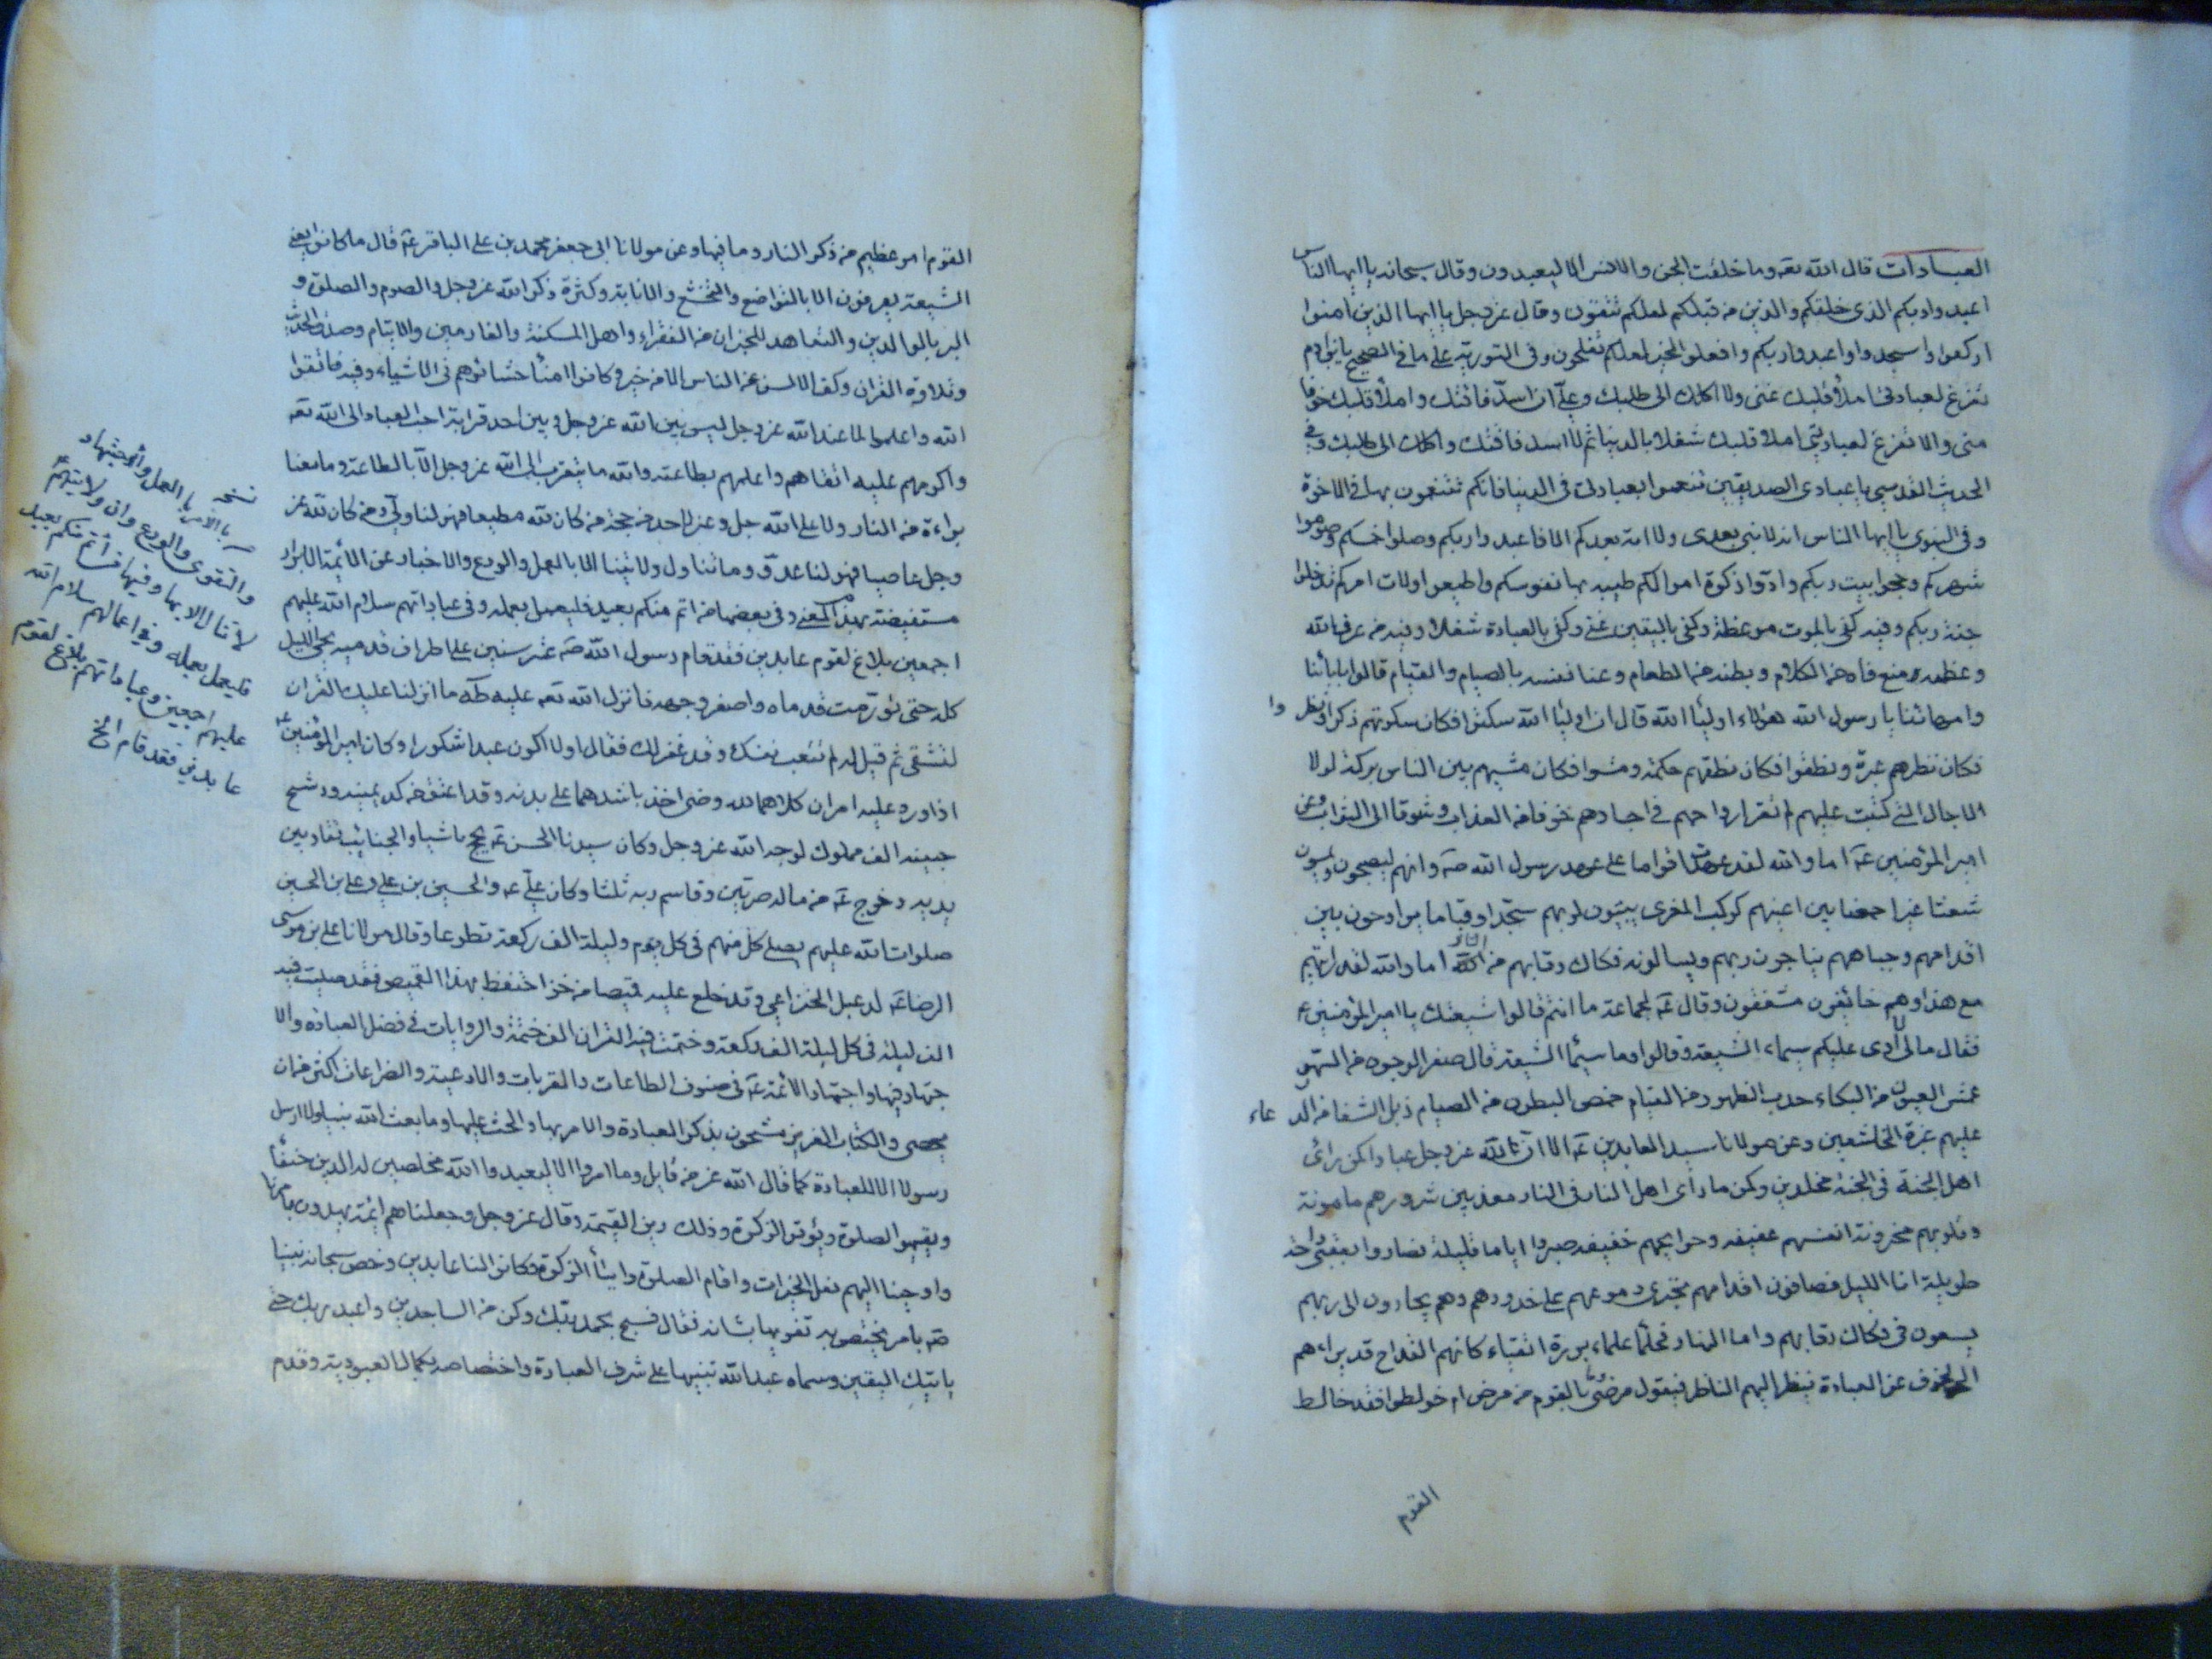 العبادات قال الله تعه وما خلقت الجن والانس الا ليعبدون وقال سبحانه يا ايها الناس
اعبدوا ربكم الذى خلقكم والذين من قبلكم لعلكم تتقون وقال عز وجل يا ايها الذين امنوا
اركعوا واسجدوا واعبدوا ربكم وافعلوا الخير لعلكم تفلحون وفى التورية على ما فى الصحيح يابن ادم
تفرغ لعبادتى املأ قلبك غنى ولا اكلك الى طلبك وعلىّ ان اسدّ فاقتك واملأ قلبك خوفا
منى والا تفرغ لعبادتى املأ قلبك شغلا بالدنيا ثم لا اسد فاقتك واكلك الى طلبك وفى
الحديث القدسى يا عبادى الصديقين تنعموا بعبادتى فى الدينا فانكم تتنعمون بها فى الاخرة
وفى النبوى يا ايها الناس انه لا نبى بعدى ولا امة بعدكم الا فاعبدوا ربكم وصلوا خمسكم وصوموا
شهركم وحجوا بيت ربكم وادّوا زكوة اموالكم طيبة بها نفوسكم واطيعوا ولات امركم تدخلوا
جنة ربكم وفيه كفى بالموت موعظة وكفى باليقين غنى وكفى بالعبادة شغلا وفيه من عرف الله
وعظمه منع فاه من الكلام وبطنه من الطعام وعنا نفسه بالصيام والقيام قالوا بابائنا
وامهاتنا يا رسول الله هؤلاء اولياء الله قال ان اولياء الله سكتوا فكان سكوتهم ذكرا ونظروا
فكان نظرهم عبرة ونطقوا فكان نطقهم حكمة ومشوا فكان مشيهم بين الناس بركة لولا
الاجال التى كتبت عليهم لم تقر ارواحهم فى اجسادهم خوفا من العذاب وشوقا الى الثواب وعن
امير المؤمنين عه اما والله لقد عهدت اقواما على عهد رسول الله صه وانهم ليصبحون ويمسون
شعثا غبرا خمصا بين اعينهم كركب المعزى يبيتون لربهم سجّدا وقياما يراوحون بين
اقدامهم وجباههم يناجون ربهم ويسالونه فكاك رقابهم من النار اما والله لقد رايتهم
مع هذا وهم خائفون مشفقون وقال عه لجماعة ما انتم قالوا شيعتك يا امير المؤمنين ع
فقال مالى لا ارى عليكم سيماء الشيعة وقالوا وما سيما الشيعة قال صفر الوجوه من السهر
عمش العيون من البكاء حدب الظهور من القيام خمص البطون من الصيام ذبل الشفاه من الدعاء
عليهم غبرة الخاشعين وعن مولانا سيد العابدين عه الا ان لله عز وجل عبادا كمن راى
اهل الجنة فى الجنة مخلدين وكمن راى اهل النار فى النار معذبين شرورهم مامونة
وقلوبهم محزونة انفسهم عفيفه وحوايجهم خفيفه صبروا اياما قليلة فصاروا بعقبى راحة
طويلة اما الليل فصافون اقدامهم تجرى دموعهم على خدودهم وهم يجارون الى ربهم
يسعون فى فكاك رقابهم واما النهار فحلماء علماء بررة اتقياء كانهم القداح قد براهم
الخوف عن العبادة ينظر اليهم الناظر فيقول مرضى وما بالقوم من مرض ام خولطوا فقد خالط
القوم
القوم امر عظيم من ذكر النار وما فيها وعن مولانا ابى جعفر محمد بن على الباقر عه قال ما كانوا يعنى
الشيعة يعرفون الا بالتواضع والتخشع والانابة وكثرة ذكر الله عز وجل والصوم والصلوة و
البر بالوالدين والتعاهد للجيران من الفقراء واهل المسكنة والغارمين والايتام وصدق الحديث
وتلاوة القران وكف الالسن عن الناس الا من خير وكانوا امناء عشائرهم فى الاشياء وفيه فاتقوا
الله واعلموا لما عند الله عز وجل ليس بين الله عز وجل وبين احد قرابة احب العباد الى الله تعه
واكرمهم عليه اتقاهم واعلمهم بطاعته والله ما يتقرب الى الله عز وجل الا بالطاعة وما معنا
براءة من النار ولا على الله جل وعز لاحد من حجة من كان لله مطيعا فهو لنا ولى ومن كان لله عز
وجل عاصيا فهو لنا عدوّ وما تنال ولايتنا الا بالعمل والورع والاخبار عن الائمة الابرار
مستفيضة بهذا المعنى وفى بعضها من ائتم منكم بعبد فليعمل بعمله وفى عباداتهم سلام الله عليهم
اجمعين بلاغ لقوم عابدين فقد قام رسول الله صه عشر سنين على اطراف قدميه يحيى الليل
كله حتى تورّمت قدماه واصفر وجهه فانزل الله تعه عليه طه ما انزلنا عليك القران
لتشقى ثم قيل له لم تتعب نفسك وقد غفر لك فقال اولا اكون عبدا شكورا وكان امير المؤمنين عه
اذا ورد عليه امران كلاهما لله رضى اخذ باشدهما على بدنه وقد اعتق من كد يمينه ورشح
جبينه الف مملوك لوجه الله عز وجل وكان سيدنا الحسن عه يحج ماشيا والجنائب تقاد بين
يديه وخرج عه من ماله مرتين وقاسم ربه ثلثا وكان على عه والحسين بن على وعلى بن الحسين
صلوات الله عليهم يصلى كل منهم فى كل يوم وليلة الف ركعة تطوعا وقال مولانا على بن موسى
الرضا عه لدعبل الخزاعى وقد خلع عليه قميصا من خز احتفظ بهذا القميص فقد صليت فيه
الف ليلة فى كل ليلة الف ركعة وختمت فيه القران الف ختمة والروايات فى فضل العبادة والا
جتهاد فيها واجتهاد الائمة عه فى صنوف الطاعات والقربات والادعية والضراعات اكثر من ان
يحصى والكتاب العزيز مشحون بذكر العبادة والامر بها والحث عليها وما بعث الله نبيا ولا ارسل
رسولا الا للعبادة كما قال الله عز من قايل وما امروا الا ليعبدوا الله مخلصين له الدين حنفاء
ويقيموا الصلوة ويؤتوا الزكوة وذلك دين القيمة وقال عز وجل وجعلناهم ائمة يهدون بامرنا
واوحينا اليهم فعل الخيرات واقام الصلوة وايتاء الزكوة وكانوا لنا عابدين وخص سبحانه نبينا
صه بامر يختص به تفويها بشانه فقال فسبح بحمد ربك وكن من الساجدين واعبد ربك حتى
ياتيك اليقين وسماه عبد الله تنبيها على شرف العبادة واختصاصه بكمال العبودية وقدم
نسخه بالعمل والاجتهاد
والتقوى والورع وان ولايتهم
لا تنال الا بها وفيها من ائتم منكم بعبد
فليعمل بعمله وفى اعمالهم سلام الله
عليهم اجمعين وعباداتهم بلاغ لقوم
عابدين فقد قام الخ